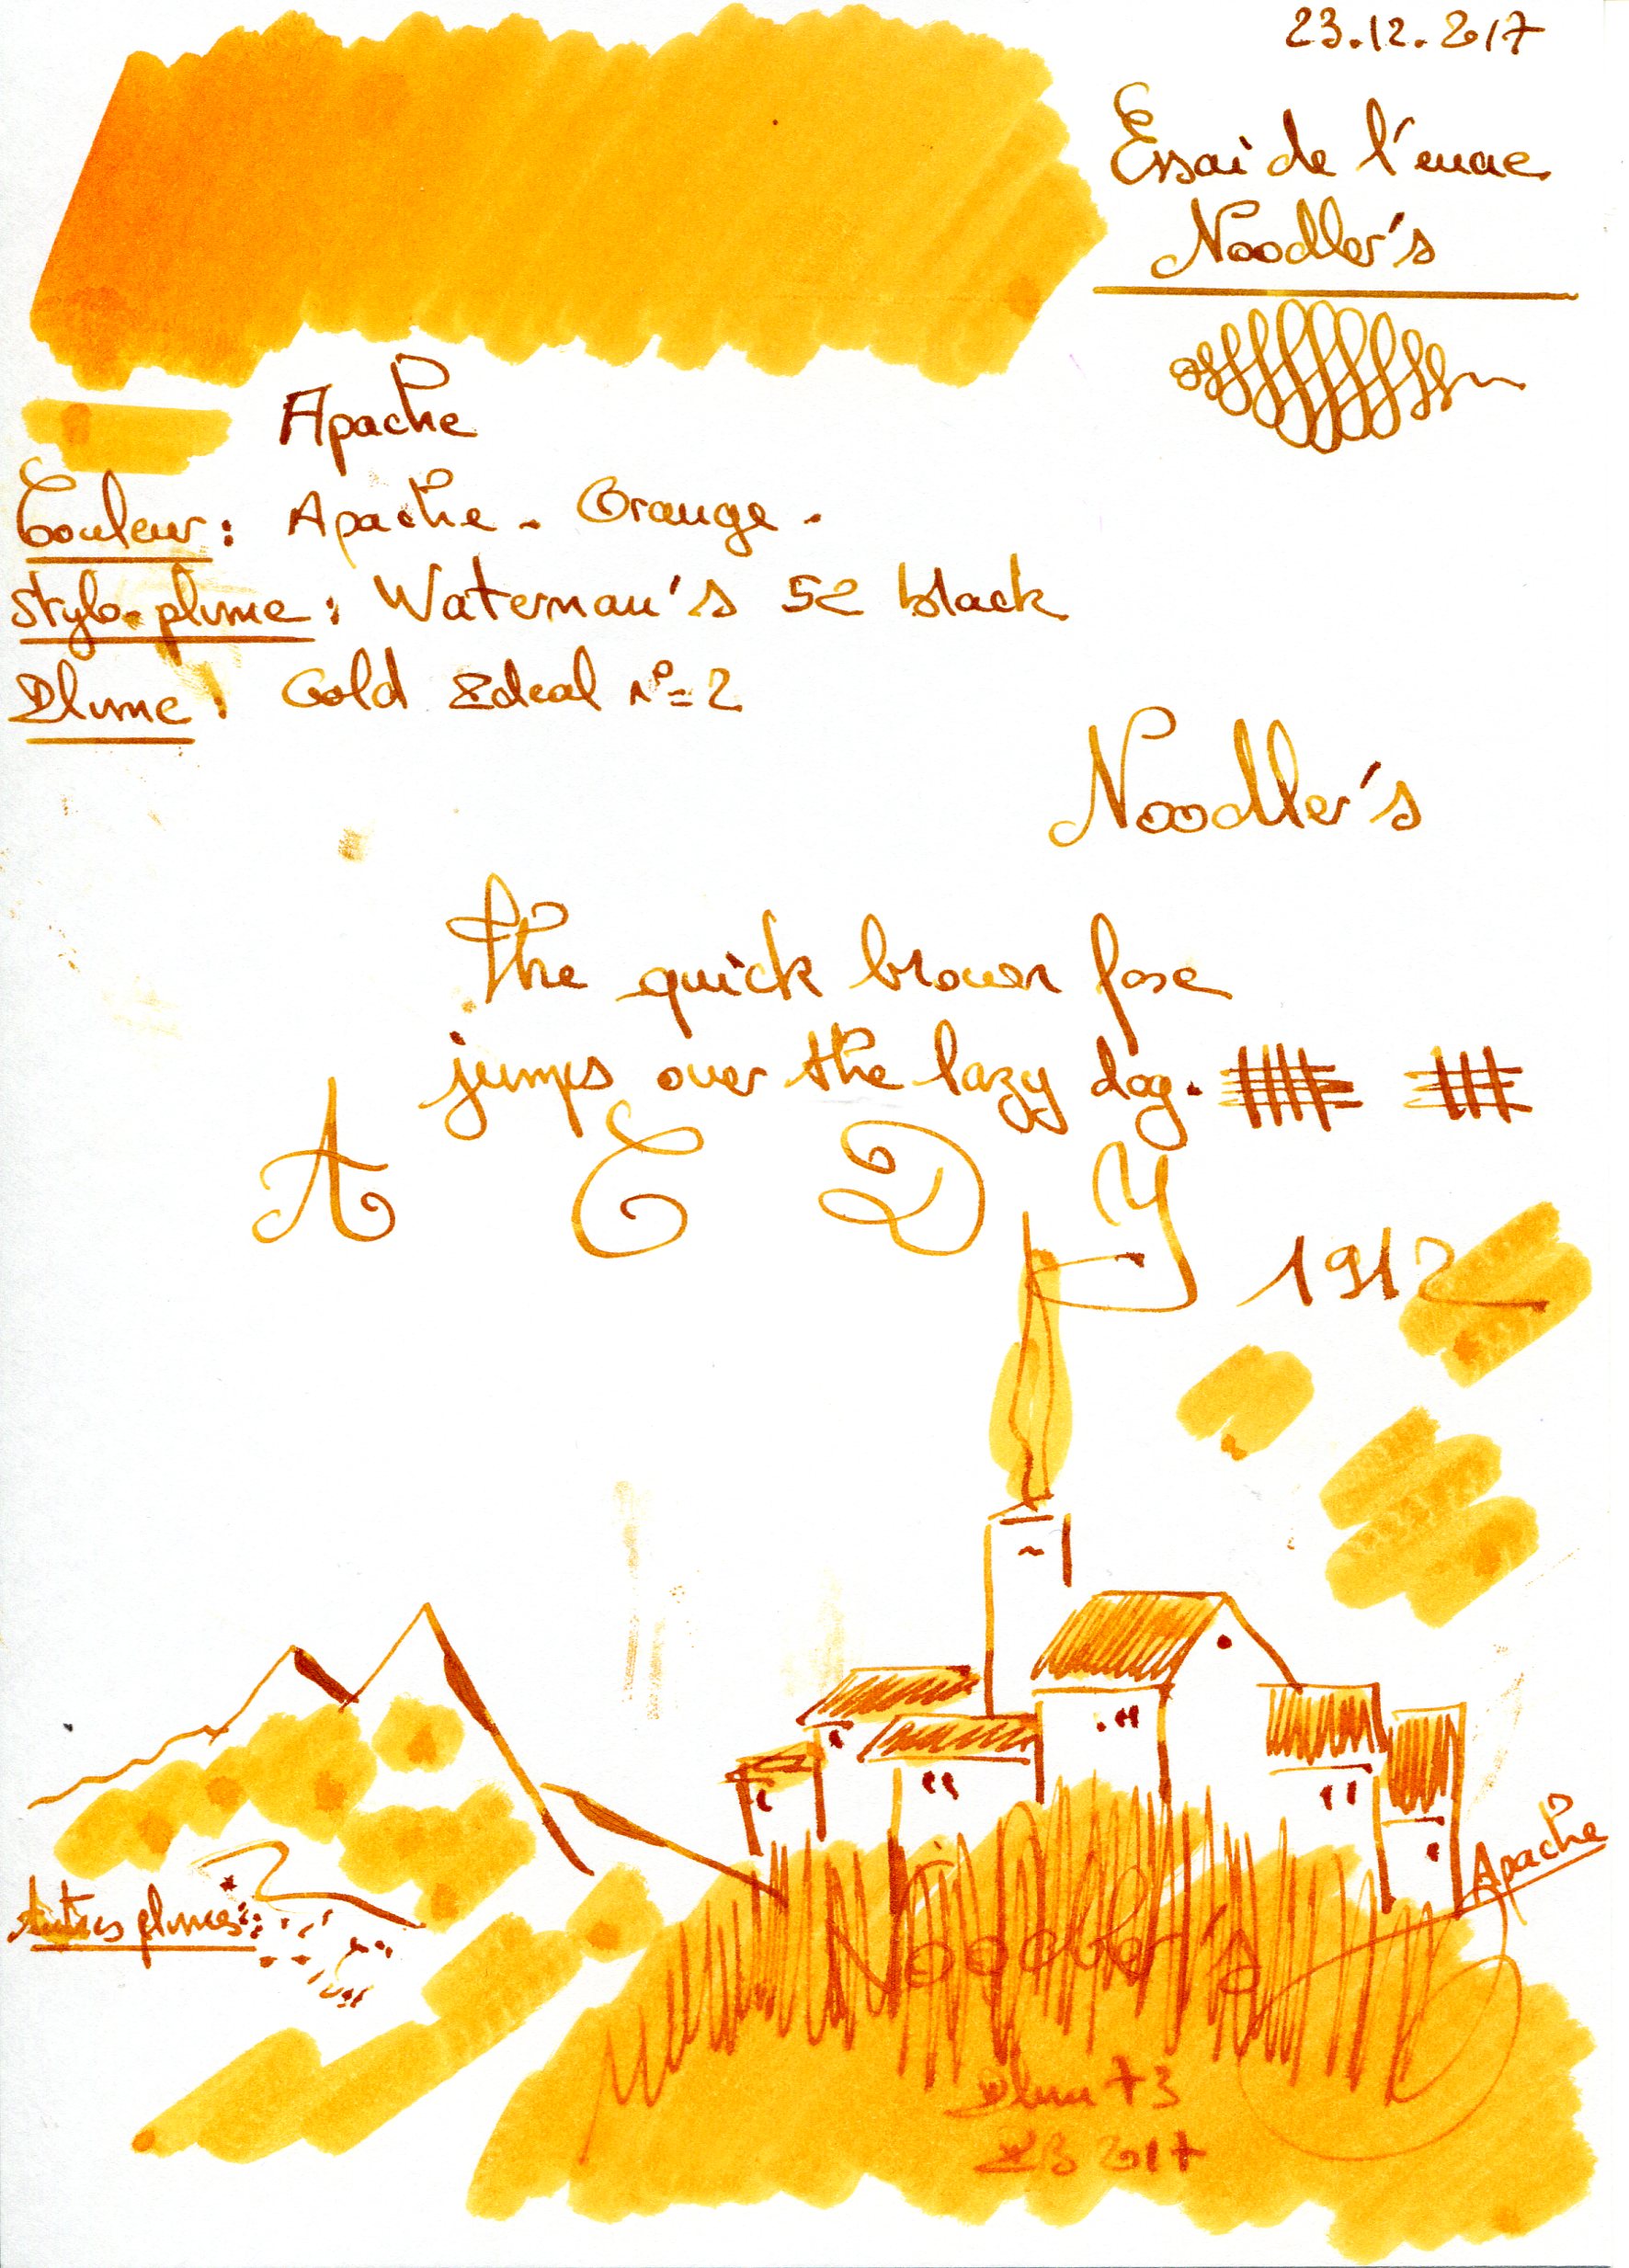 23.12.2017
Essai de l'encre
Noodler's
Apache
Couleur: Apache - Orange.
Stylo-plume: Waterman's 52 black
Plume: Gold Ideal N°=2
Noodler's
The quick brown fox
jumps over the lazy dog.
A E D Y
1912
Apache
Autres plumes:
Noodler's
2017